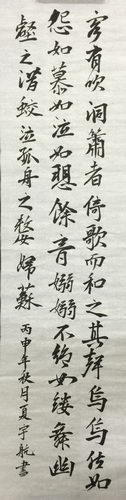 客有吹洞簫者倚歌而和之其聲烏烏然如
怨如慕如泣如愬餘音嫋嫋不絕如縷舞幽
壑之潛蛟泣孤舟之嫠婦蘇 丙申年秋月夏宇航書